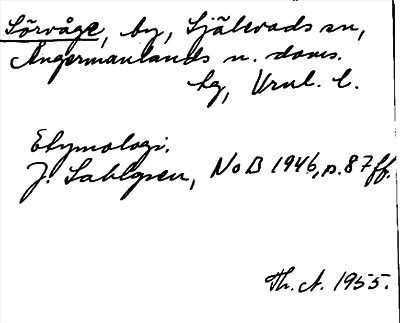 Sörvåge, by, Själevads sn,
Ångermanlands n. doms.
hg, Vrnl. l.
Etymologi.
J. Sahlgren, NoB 1946, s. 87 ff.
Th. A. 1955.